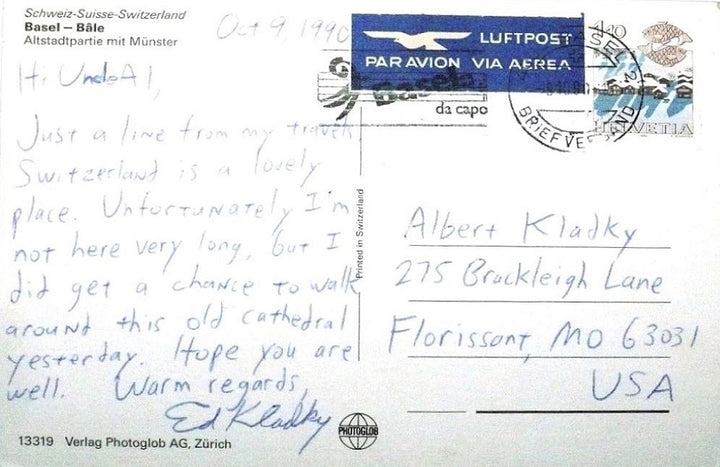 Schweiz-Suisse-Switzerland
Basel – Bâle
Altstadtpartie mit Münster
Oct 9, 1990
Hi Uncle Al,
Just a line from my travels
Switzerland is a lovely
place. Unfortunately I'm
not here very long, but I
did get a chance to walk
around this old cathedral
yesterday. Hope you are
well. Warm regards,
Ed Kladky
13319 Verlag Photoglob AG, Zürich
PHOTOGLOB
Printed in Switzerland
LUFTPOST
PAR AVION VIA AEREA
Basel
da capo
BASEL 2
BRIEFVERSAND
HELVETIA
Albert Kladky
275 Brackleigh Lane
Florissant, MO 63031
USA